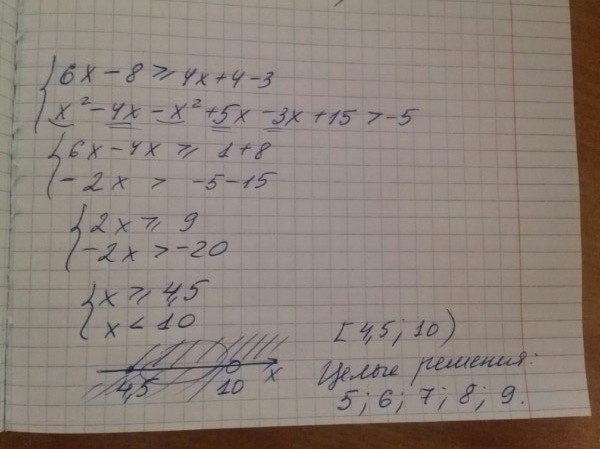 { 6x - 8 ≥ 4x + 4 - 3
x² - 4x - x² + 5x - 3x + 15 > -5
{ 6x - 4x ≥ 1 + 8
- 2x > -5 - 15
{ 2x ≥ 9
- 2x > -20
{ x ≥ 4,5
x < 10
4,5 10 x
[4,5; 10)
Целые решения:
5; 6; 7; 8; 9.